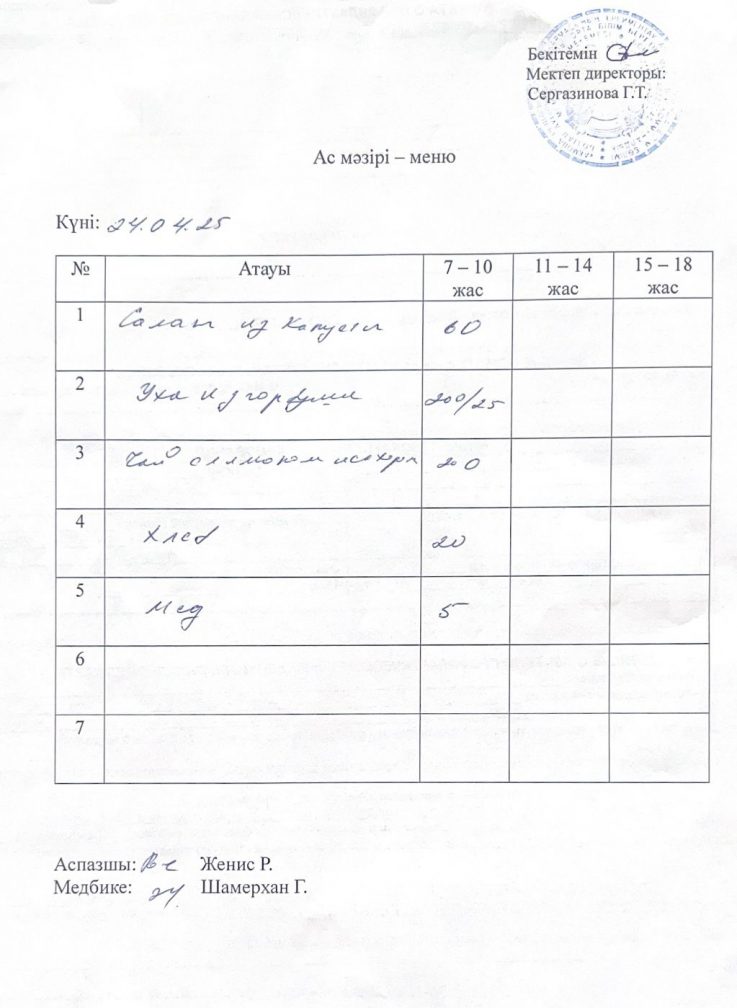 Бекітемін
Мектеп директоры:
Сергазинова Г.Т.
Ас мәзірі – меню
Күні: 24.04.25
№ Атауы 7 – 10 жас 11 – 14 жас 15 – 18 жас
1 Салат из капусты 60
2 Уха из горбуши 200/25
3 Чай с лимоном и сахаром 200
4 Хлеб 20
5 Мед 5
6
7
Аспазшы: Женис Р.
Медбике: Шамерхан Г.